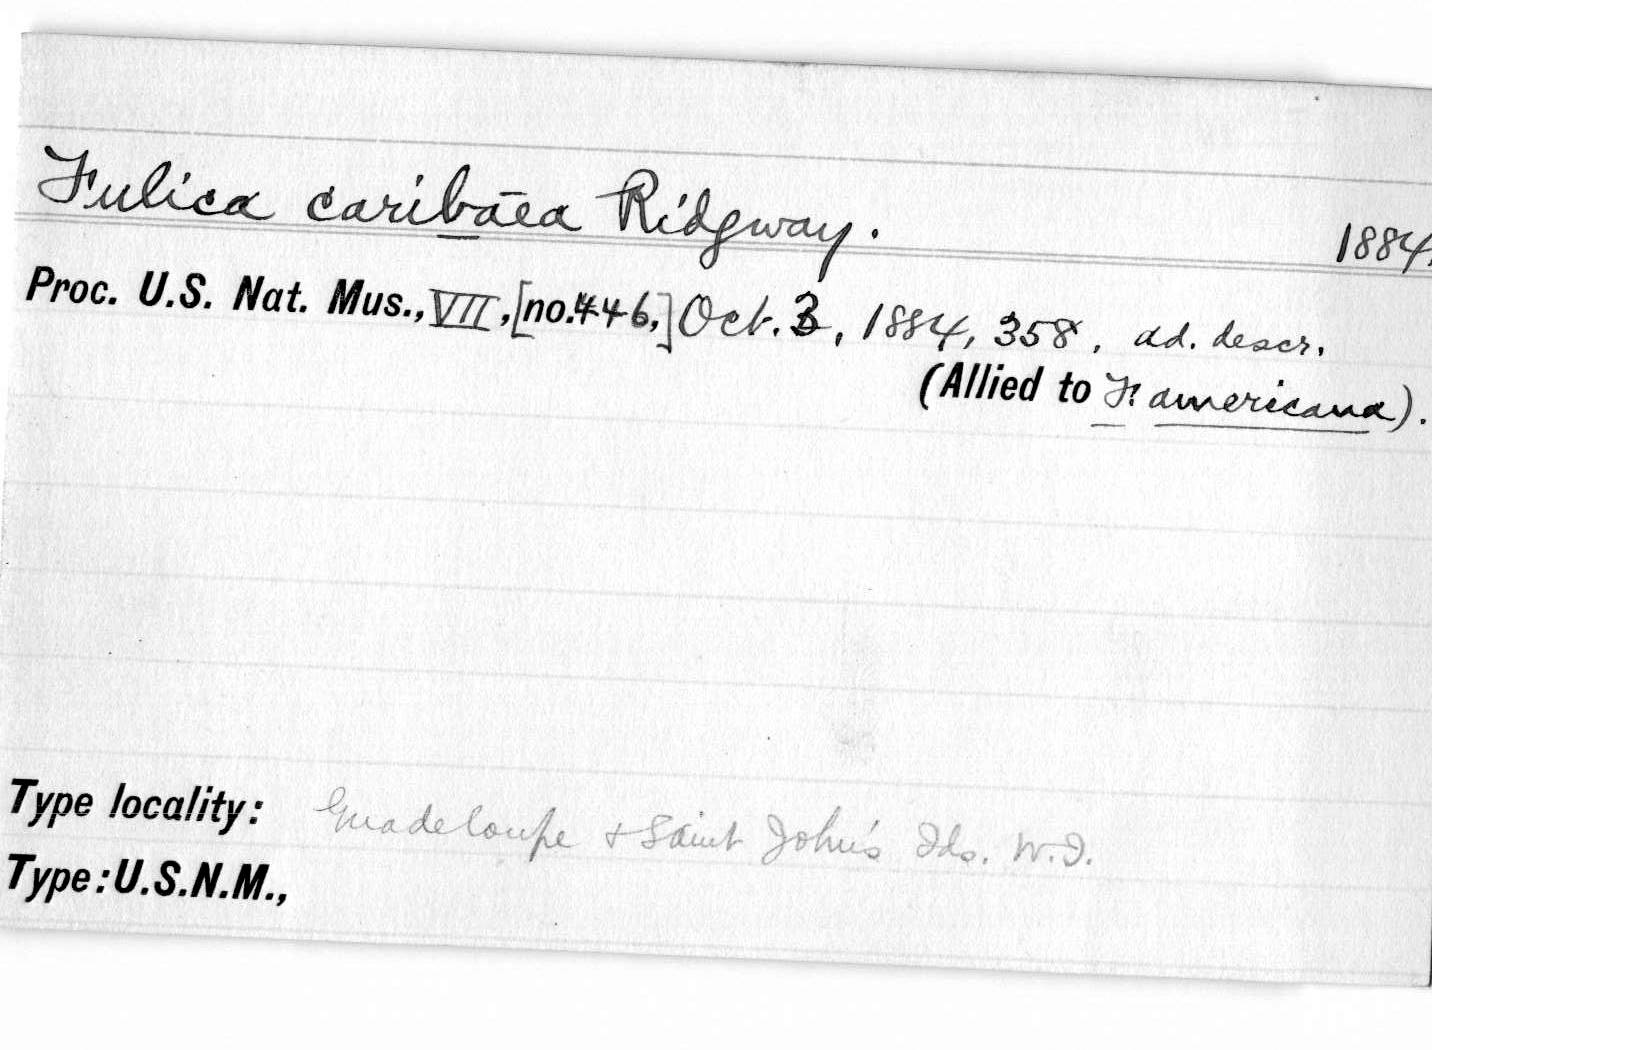 Fulica caribaea Ridgway. 1884.
Proc. U.S. Nat. Mus., VII, [no. 446,] Oct. 3, 1884, 358, ad. descr.
(Allied to F. americana).
Type locality: Guadeloupe + Saint John's Ids. W.I.
Type: U.S.N.M.,